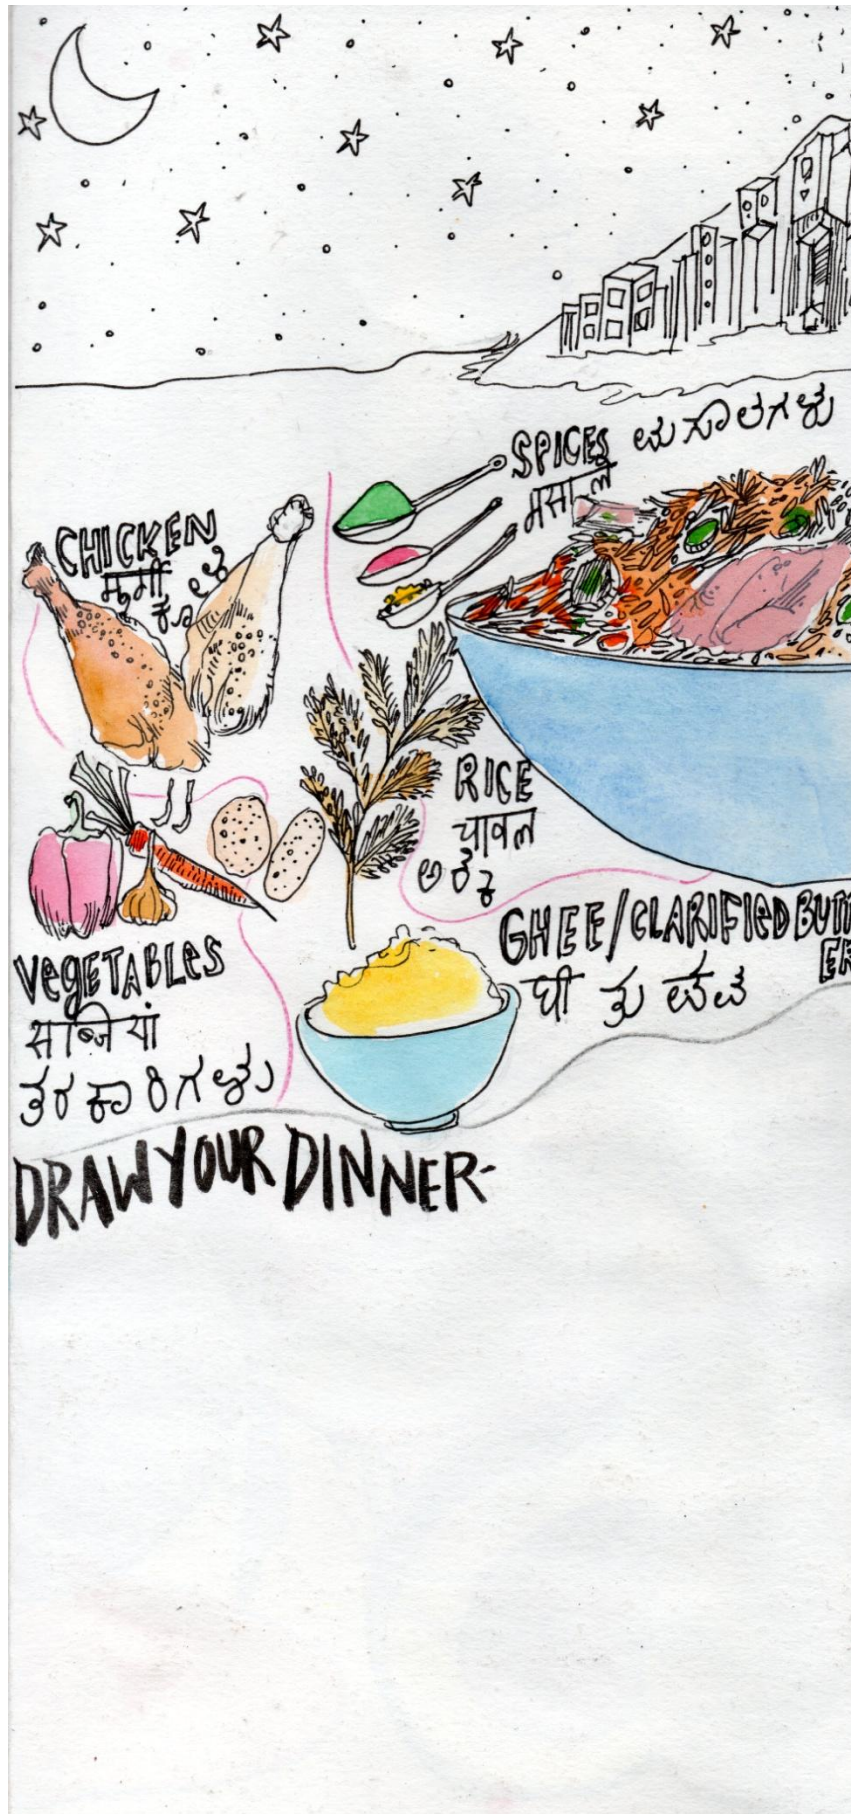 SPICES ಮಸಾಲೆಗಳು
मसाले
CHICKEN
मुर्गी
ಕೋಳಿ
RICE
चावल
ಅಕ್ಕಿ
GHEE/CLARIFIED BUTT
ER
घी ತುಪ್ಪ
VEGETABLES
सब्जियां
ತರಕಾರಿಗಳು
DRAW YOUR DINNER-